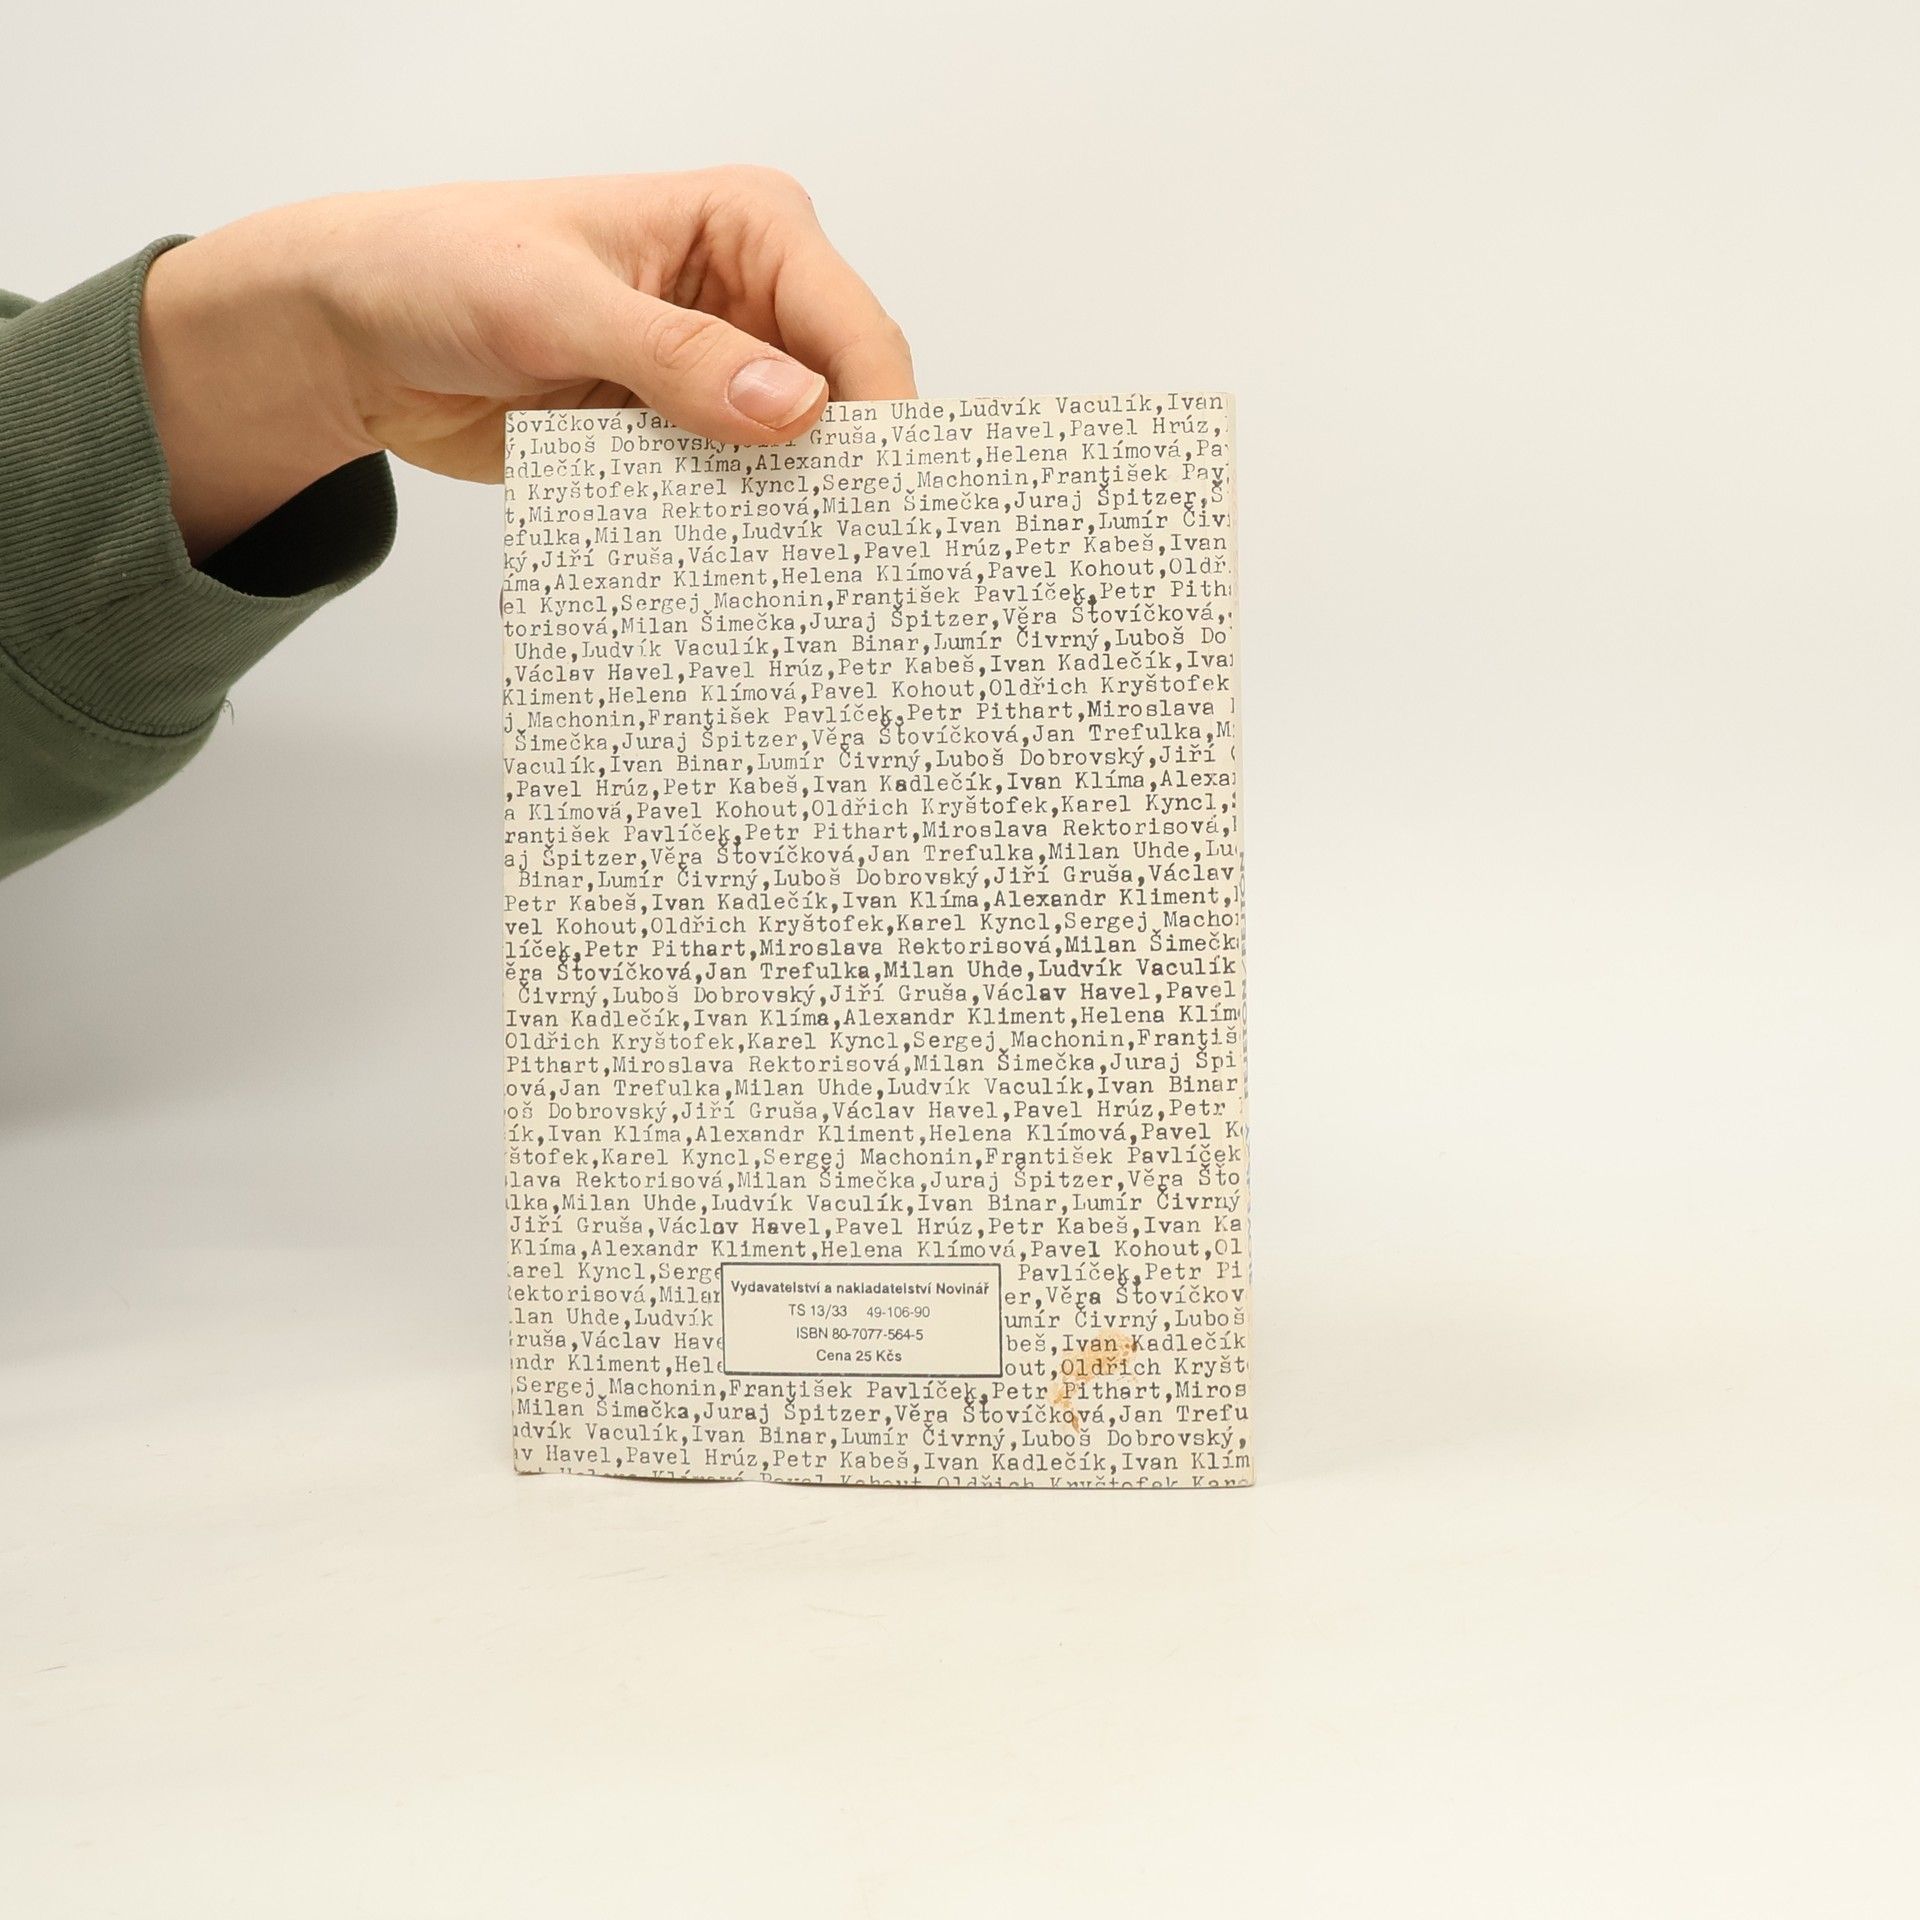 Šovíčková,Jan Milan Uhde,Ludvík Vaculík,Ivan
ý,Luboš Dobrovský,Jiří Gruša,Václav Havel,Pavel Hrúz,
adlečík,Ivan Klíma,Alexandr Kliment,Helena Klímová,Pa
n Kryštofek,Karel Kyncl,Sergej Machonin,František Pav
t,Miroslava Rektorisová,Milan Šimečka,Juraj Špitzer,
efulka,Milan Uhde,Ludvík Vaculík,Ivan Binar,Lumír Čiv
ký,Jiří Gruša,Václav Havel,Pavel Hrúz,Petr Kabeš,Ivan
íma,Alexandr Kliment,Helena Klímová,Pavel Kohout,Oldř
el Kyncl,Sergej Machonin,František Pavlíček,Petr Pith
torisová,Milan Šimečka,Juraj Špitzer,Věra Šťovíčková,
Uhde,Ludvík Vaculík,Ivan Binar,Lumír Čivrný,Luboš Do
,Václav Havel,Pavel Hrúz,Petr Kabeš,Ivan Kadlečík,Iva
Kliment,Helena Klímová,Pavel Kohout,Oldřich Kryštofek
j Machonin,František Pavlíček,Petr Pithart,Miroslava
Šimečka,Juraj Špitzer,Věra Šťovíčková,Jan Trefulka,M
Vaculík,Ivan Binar,Lumír Čivrný,Luboš Dobrovský,Jiří
,Pavel Hrúz,Petr Kabeš,Ivan Kadlečík,Ivan Klíma,Alexa
a Klímová,Pavel Kohout,Oldřich Kryštofek,Karel Kyncl,
rantišek Pavlíček,Petr Pithart,Miroslava Rektorisová,
aj Špitzer,Věra Šťovíčková,Jan Trefulka,Milan Uhde,Lu
Binar,Lumír Čivrný,Luboš Dobrovský,Jiří Gruša,Václav
Petr Kabeš,Ivan Kadlečík,Ivan Klíma,Alexandr Kliment,
vel Kohout,Oldřich Kryštofek,Karel Kyncl,Sergej Macho
líček,Petr Pithart,Miroslava Rektorisová,Milan Šimečk
ěra Šťovíčková,Jan Trefulka,Milan Uhde,Ludvík Vaculík
Čivrný,Luboš Dobrovský,Jiří Gruša,Václav Havel,Pavel
Ivan Kadlečík,Ivan Klíma,Alexandr Kliment,Helena Klím
Oldřich Kryštofek,Karel Kyncl,Sergej Machonin,Františ
Pithart,Miroslava Rektorisová,Milan Šimečka,Juraj Špi
ová,Jan Trefulka,Milan Uhde,Ludvík Vaculík,Ivan Binar
oš Dobrovský,Jiří Gruša,Václav Havel,Pavel Hrúz,Petr
ík,Ivan Klíma,Alexandr Kliment,Helena Klímová,Pavel K
štofek,Karel Kyncl,Sergej Machonin,František Pavlíček
lava Rektorisová,Milan Šimečka,Juraj Špitzer,Věra Šťo
lka,Milan Uhde,Ludvík Vaculík,Ivan Binar,Lumír Čivrný
Jiří Gruša,Václav Havel,Pavel Hrúz,Petr Kabeš,Ivan Ka
Klíma,Alexandr Kliment,Helena Klímová,Pavel Kohout,Ol
arel Kyncl,Serge Pavlíček,Petr Pi
Rektorisová,Milan er,Věra Šťovíčkov
lan Uhde,Ludvík umír Čivrný,Luboš
Gruša,Václav Have beš,Ivan Kadlečík
ndr Kliment,Hele out,Oldřich Kryšt
Vydavatelství a nakladatelství Novinář
TS 13/33 49-106-90
ISBN 80-7077-564-5
Cena 25 Kčs
,Sergej Machonin,František Pavlíček,Petr Pithart,Miros
,Milan Šimečka,Juraj Špitzer,Věra Šťovíčková,Jan Trefu
udvík Vaculík,Ivan Binar,Lumír Čivrný,Luboš Dobrovský,
av Havel,Pavel Hrúz,Petr Kabeš,Ivan Kadlečík,Ivan Klím
Helena Klímová,Pavel Kohout,Oldřich Kryštofek,Kare